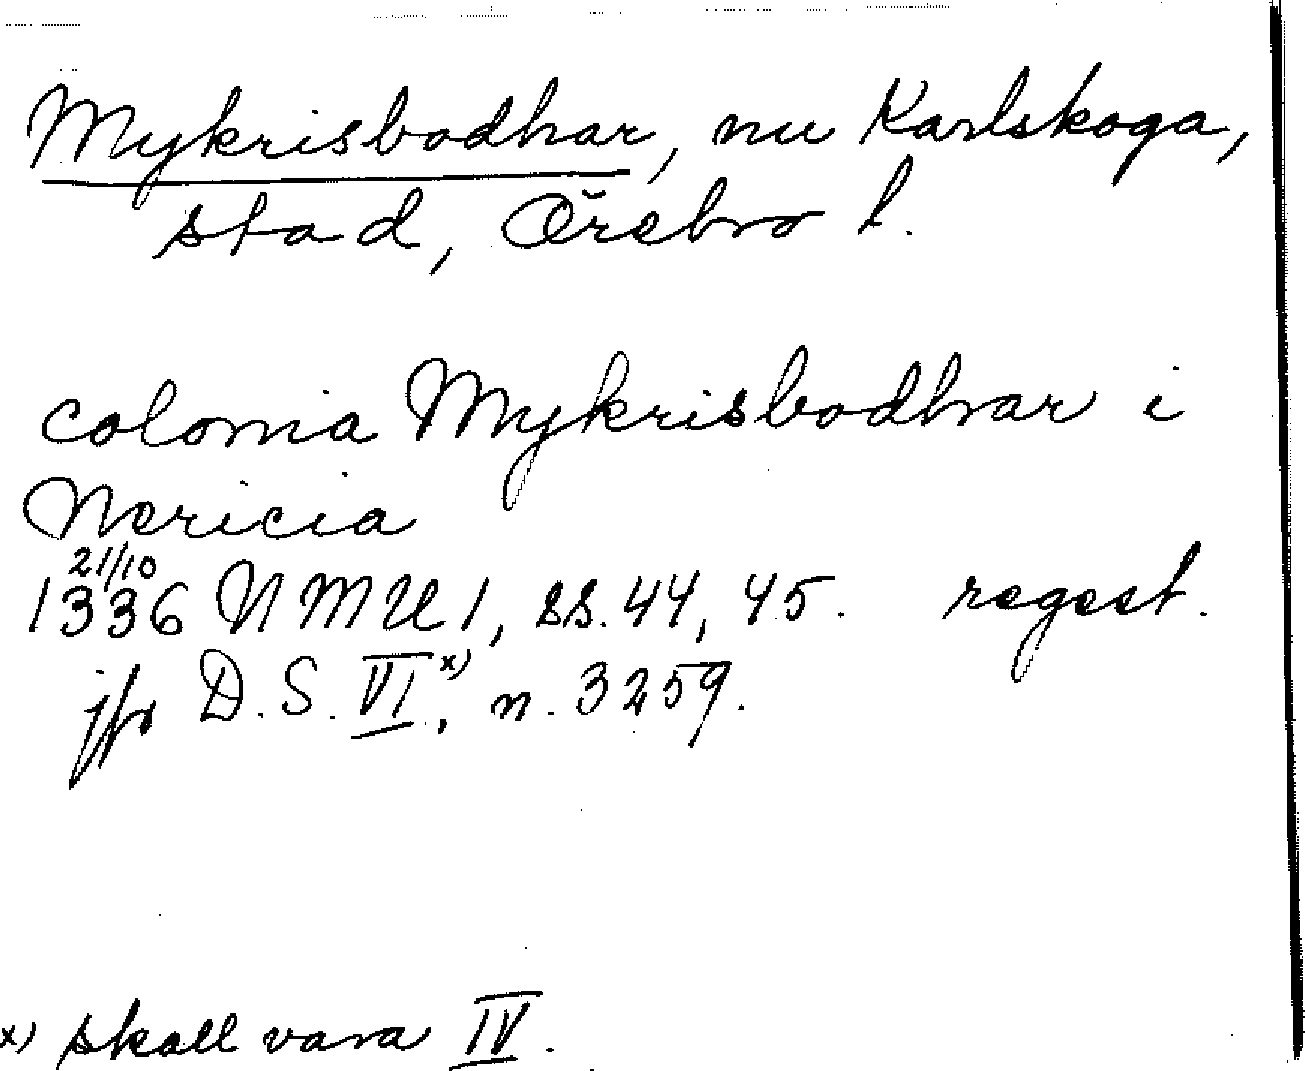 Mykrisbodhar, nu Karlskoga,
stad, Örebro l.
colonia Mykrisbodhar i
Nericia
21/10
1336 NMU 1, ss. 44, 45. regest.
jfr D.S. VI x), n. 3259.
x) skall vara IV.